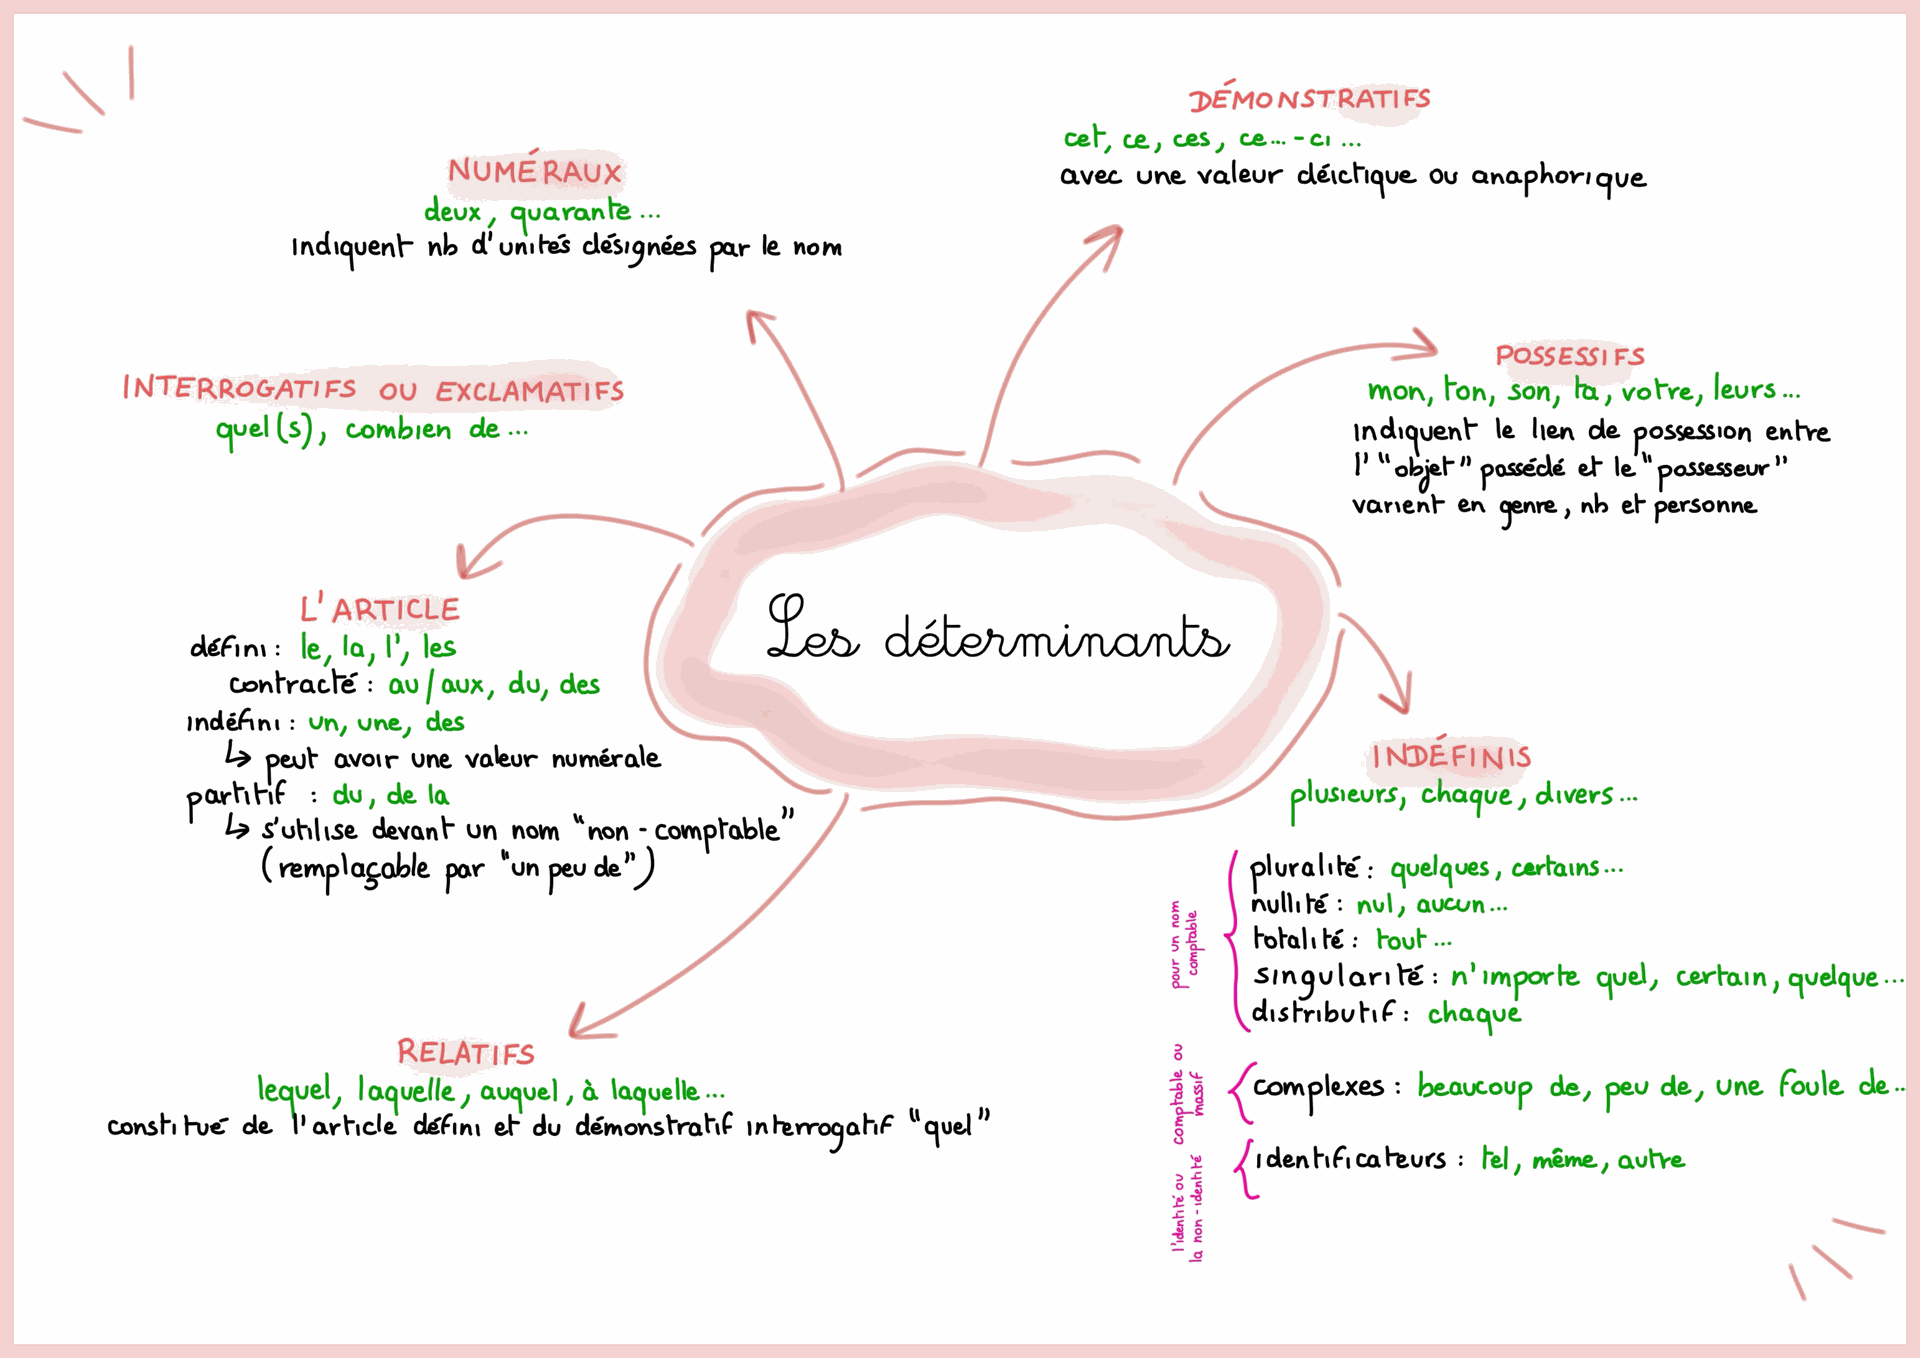 Les déterminants
NUMÉRAUX
deux, quarante...
indiquent nb d'unités désignées par le nom
DÉMONSTRATIFS
cet, ce, ces, ce...-ci...
avec une valeur déictique ou anaphorique
INTERROGATIFS OU EXCLAMATIFS
quel(s), combien de...
POSSESSIFS
mon, ton, son, ta, votre, leurs...
indiquent le lien de possession entre
l'"objet" possédé et le "possesseur"
varient en genre, nb et personne
L'ARTICLE
défini : le, la, l', les
contracté : au/aux, du, des
indéfini : un, une, des
↳ peut avoir une valeur numérale
partitif : du, de la
↳ s'utilise devant un nom "non-comptable"
(remplaçable par "un peu de")
INDÉFINIS
plusieurs, chaque, divers...
pour un nom
comptable
pluralité : quelques, certains...
nullité : nul, aucun...
totalité : tout...
singularité : n'importe quel, certain, quelque...
distributif : chaque
comptable ou
massif
complexes : beaucoup de, peu de, une foule de...
l'identité ou
la non-identité
identificateurs : tel, même, autre
RELATIFS
lequel, laquelle, auquel, à laquelle...
constitué de l'article défini et du démonstratif interrogatif "quel"